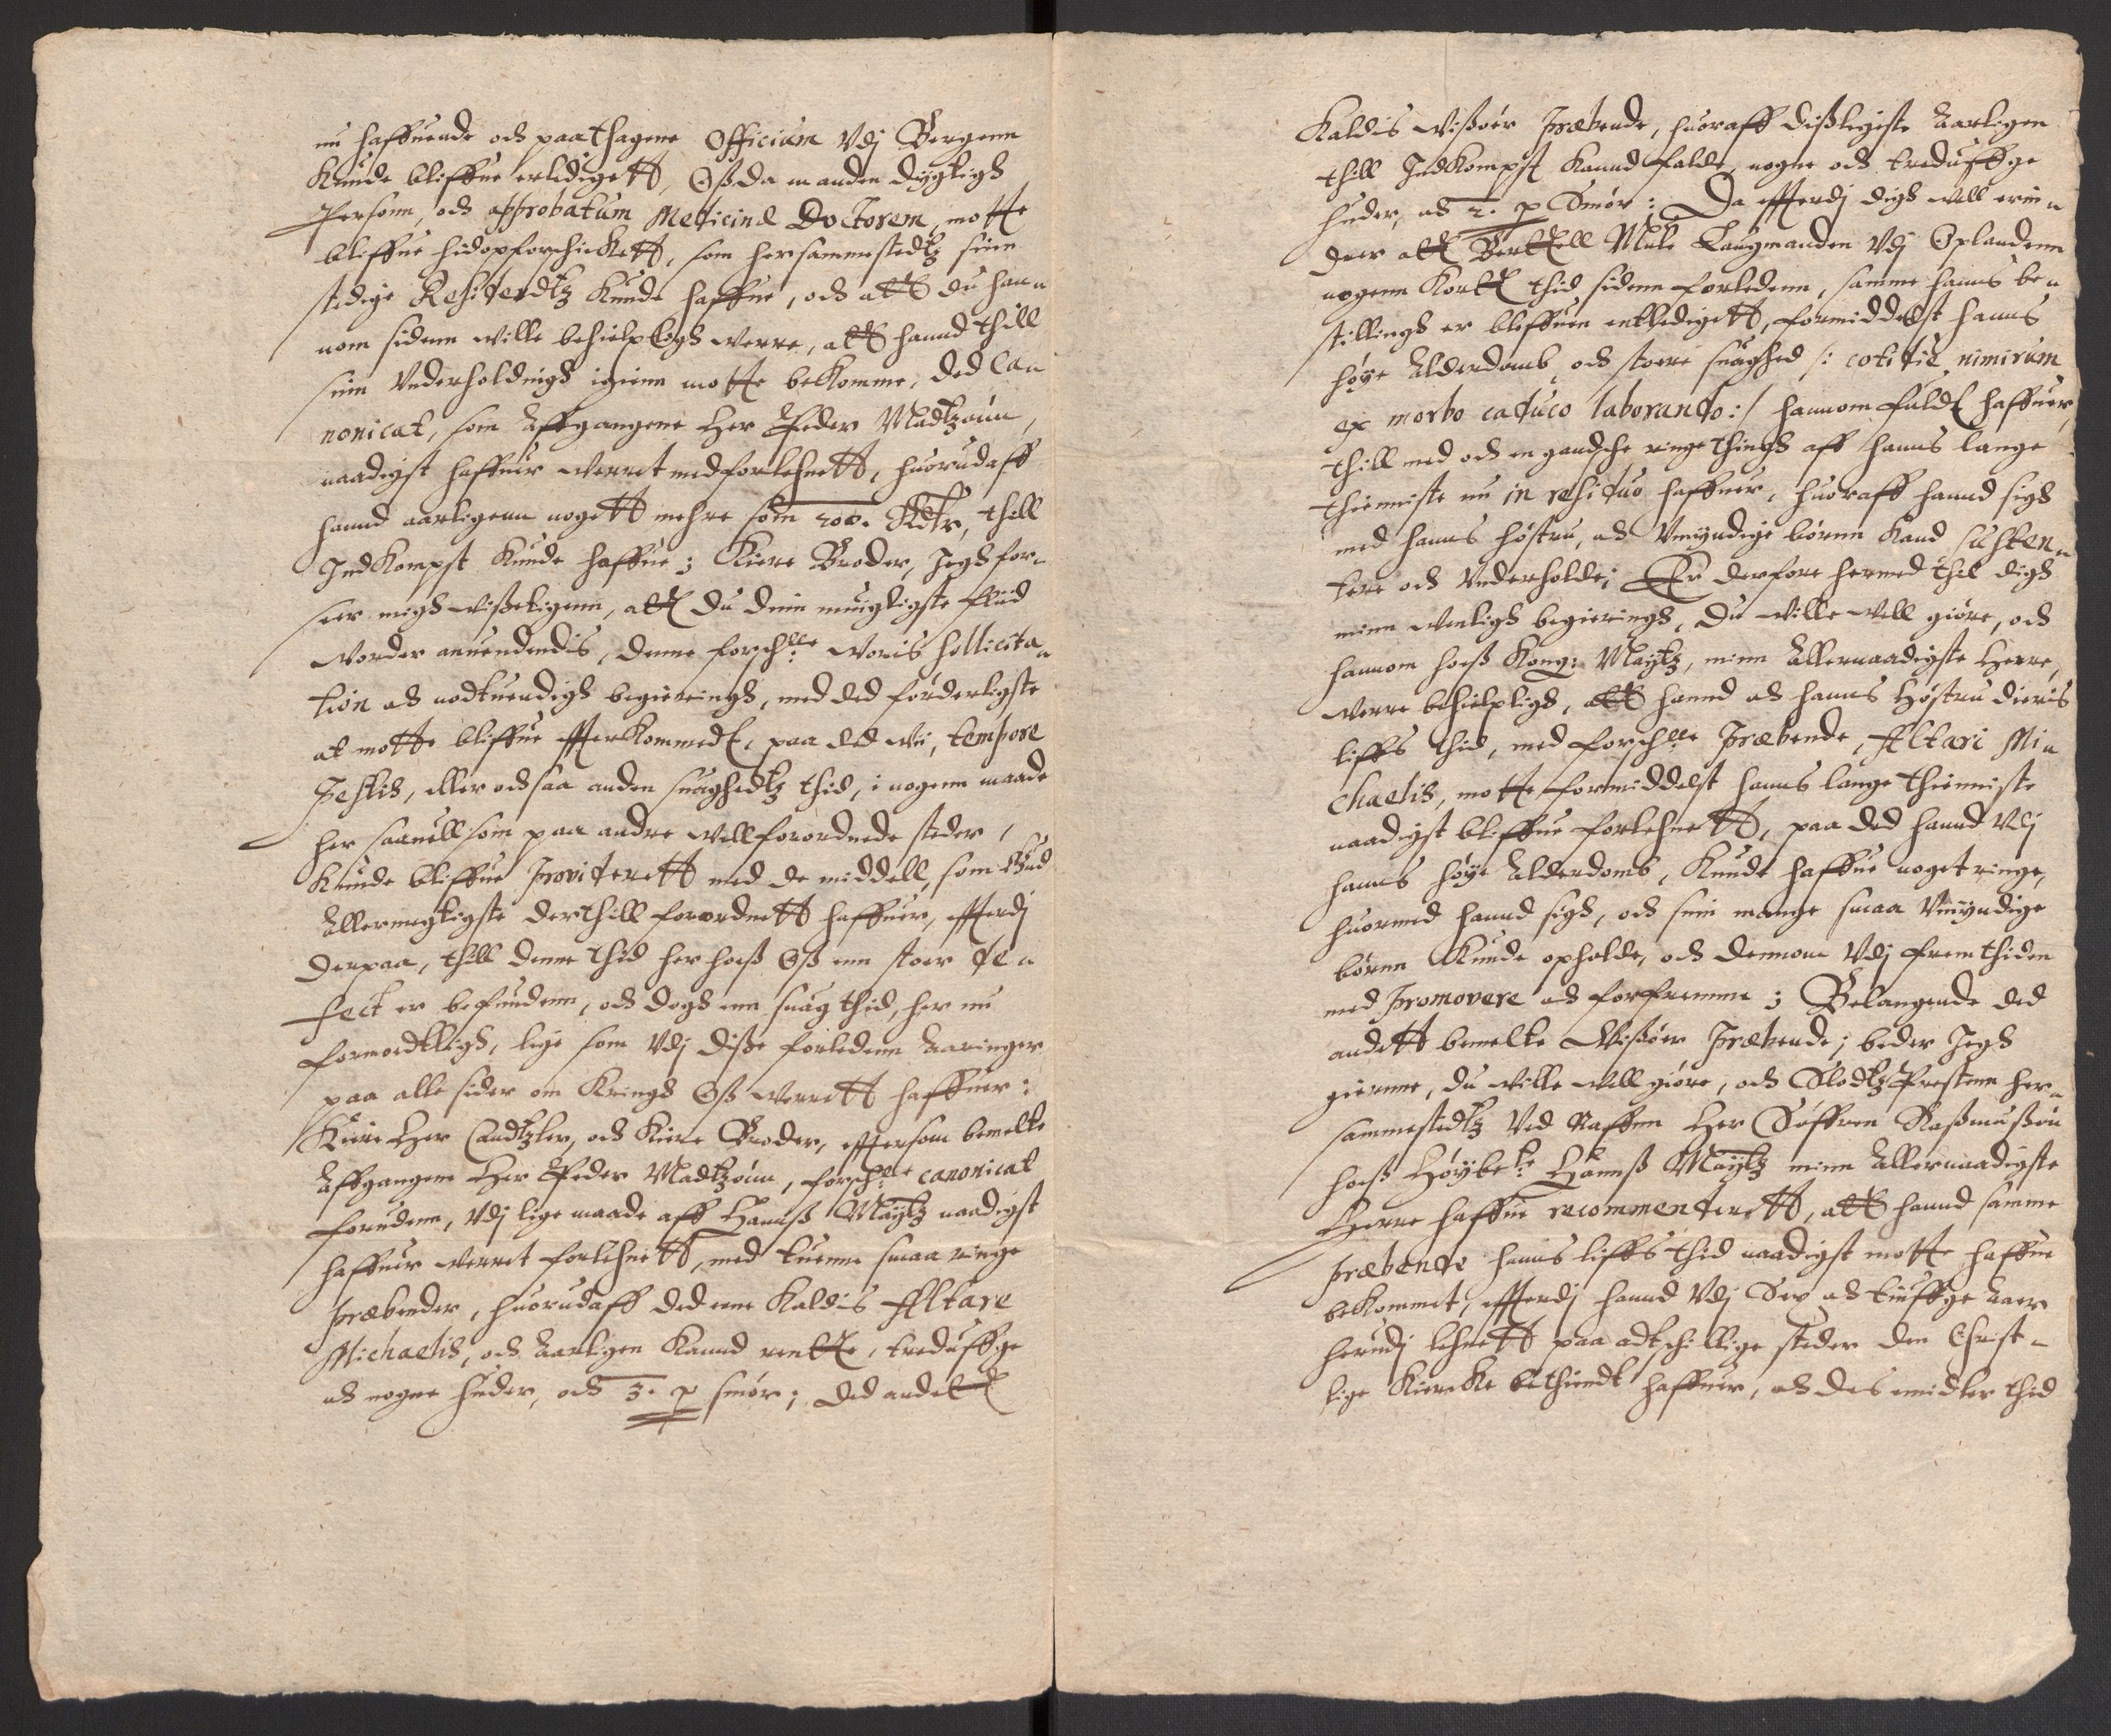 nu haffuende och paathagene Officium Vdj Bergenn
Kunde bliffue erledigett, Oß da en anden dygtigh
Persönn, och approbatum Medicinæ Doctorem, motte
bliffue hidopforschickett, som hersammestedtz sinn
stedige Residendtz Kunde haffue, och att du han-
nom sidenn wille behielpligh werre, att hannd thill
sinn Vnderholdningh igienn motte bekomme, ded Ca-
nonicat, som Affgangene Her Peder Madtzöun,
naadigst haffuer werret medforlehnett, huorudaff
hannd aarligenn nogett mehre som 200. Rdr, thill
Indkompst Kunde haffue; Kiere Broder, Jegh for-
seer migh wisseligenn, att du dinn muigligste fliid
worder anuendendis, denne forschne woris sollicita-
tion och nodtuendigh begieringh, med ded forderligste
at motte bliffue efterkommedt, paa ded wii, tempore
pestis, eller och saa anden suaghedtz thid, i nogenn maade
her saauell som paa andre wellforordnede steder,
Kunde bliffue provideritt med de middell, som Gud
Allermegtigste derthill forordnett haffuer, efterdj
derpaa, thill denne thid her hoeß Oß enn stoer de-
fect er befundenn, och dogh enn suag thid, her nu
formodtligh, lige som Vdj disse forledenn Aaringer
paa alle sider om Kringh Oß werrett haffuer:
Kiere Her Candtzler, och Kiere Broder, eftersom bemelte
Affgangene Her Peder Madtzöun, forschne canonicat
forudenn, Vdj lige maade aff Hannß Maytz naadigst
haffuer werret forlehnett, med tuenne smaa ringe
præbender, huorudaff ded eene Kaldis Altare
Michaelis, och Aarligen Kannd rentte, tredufftge
och nogne huder, och 3. p smör; ded andett
Kaldis wissöer Præbende, huoraff dißligeste Aarligen
thill Indkompst Kannd falde nogne och treduffge
huder, och 2. p Smör: Da efterdj digh well erin-
drer att Bertell Mule Laugmanden Vdj Oplandenn
nogenn Kortt thid sidenn forledenn, samme hanns be-
stillingh er bleffuen entledigett, formiddelst hanns
høye Alderdomb, och stoere suaghed /: cotidie nimirum
ex morbo caduco laborando :/ hannom fuldt haffuer,
thill med och en gandsche ringe thingh aff hanns lange
thienniste nu in residuo haffuer, huoraff hannd sigh
med hanns höstru, och Vmyndige börnn Kand susten-
tere och Vnderholde; Er derfore hermed thil digh
minn wenligh begieringh, du wille well giöre, och
hannom hoeß Kong: Maytz, minn Allernaadigste Herre,
werre behielpligh, att hannd och hanns Höstru dieris
liffs thid, med forschne Præbende, Altari Mi-
chaelis, motte formiddelst hanns lange thienniste
naadigst bliffue forlehnett, paa ded hannd Vdj
hanns høye Alderdomb, Kunde haffue noget ringe,
huormed hannd sigh, och sinn mange smaa Vmyndige
börnn Kunde opholde, och dennom Vdj fremthiden
med promovere och forfremme; Belangende ded
andett bemelte Wissöer Præbende; beder Jegh
gierne, du wille well giöre, och Slodtz Presten her-
sammestedtz Ved Naffnn Her Söffren Raßmussön
hoeß Höybete Hannß Maytz minn Allernaadigste
Herre haffue recommenderett, att hannd samme
præbende hanns liffs thid naadigst motte haffue
bekommet, efterdj hannd Vdj Sex och tiuffge Aar
herudj lehnett paa adtschillige steder den Christ-
lige Kiercke bethiendt haffuer, och des imidler thid